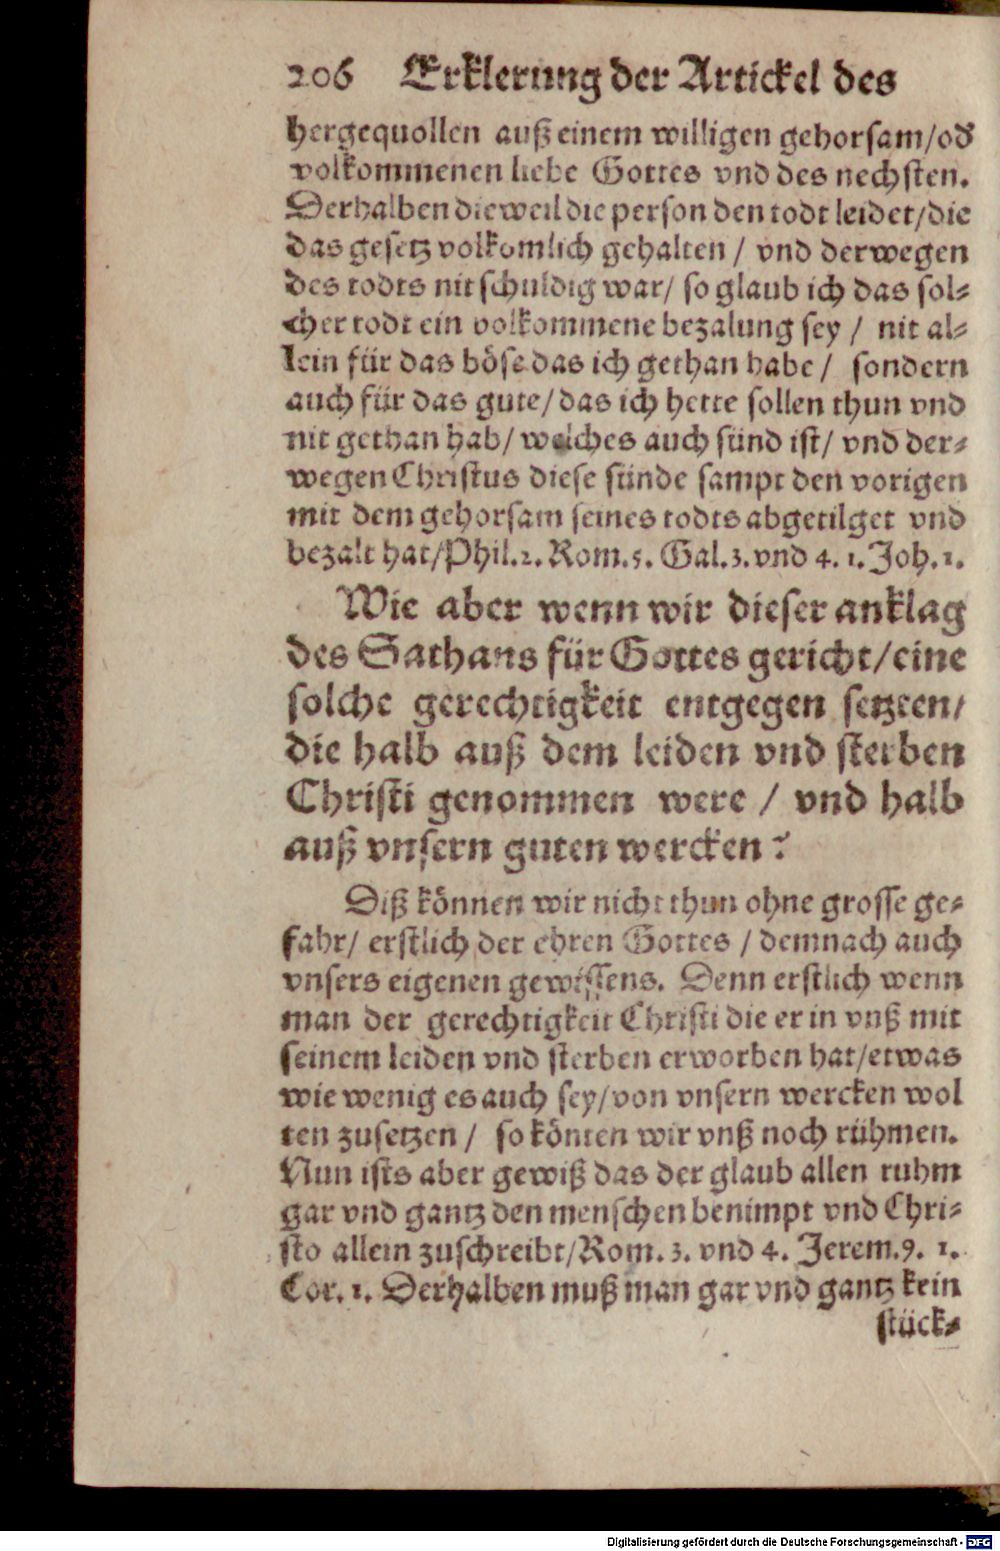 206 Erklerung der Artickel des
hergequollen auß einem willigen gehorsam/od
volkommenen liebe Gottes vnd des nechsten.
Derhalben dieweil die person den todt leidet/die
das gesetz volkomlich gehalten / vnd derwegen
des todts nit schuldig war/ so glaub ich das sol-
cher todt ein volkommene bezalung sey / nit al-
lein für das böse das ich gethan habe / sondern
auch für das gute/das ich hette sollen thun vnd
nit gethan hab/ welches auch sünd ist/ vnd der-
wegen Christus diese sünde sampt den vorigen
mit dem gehorsam seines todts abgetilget vnd
bezalt hat/Phil.2. Rom.5. Gal.3.vnd 4. 1. Joh.1.
Wie aber wenn wir dieser anklag
des Sathans für Gottes gericht/eine
solche gerechtigkeit entgegen setzten/
die halb auß dem leiden vnd sterben
Christi genommen were / vnd halb
auß vnsern guten wercken?
Diß können wir nicht thun ohne grosse ge-
fahr/ erstlich der ehren Gottes / demnach auch
vnsers eigenen gewissens. Denn erstlich wenn
man der gerechtigkeit Christi die er in vnß mit
seinem leiden vnd sterben erworben hat/etwas
wie wenig es auch sey/von vnsern wercken wol
ten zusetzen / so könten wir vnß noch rühmen.
Nun ists aber gewiß das der glaub allen ruhm
gar vnd gantz den menschen benimpt vnd Chri-
sto allein zuschreibt/Rom. 3. vnd 4. Jerem.9. 1.
Cor. 1. Derhalben muß man gar vnd gantz kein
stück-
Digitalisierung gefördert durch die Deutsche Forschungsgemeinschaft - DFG